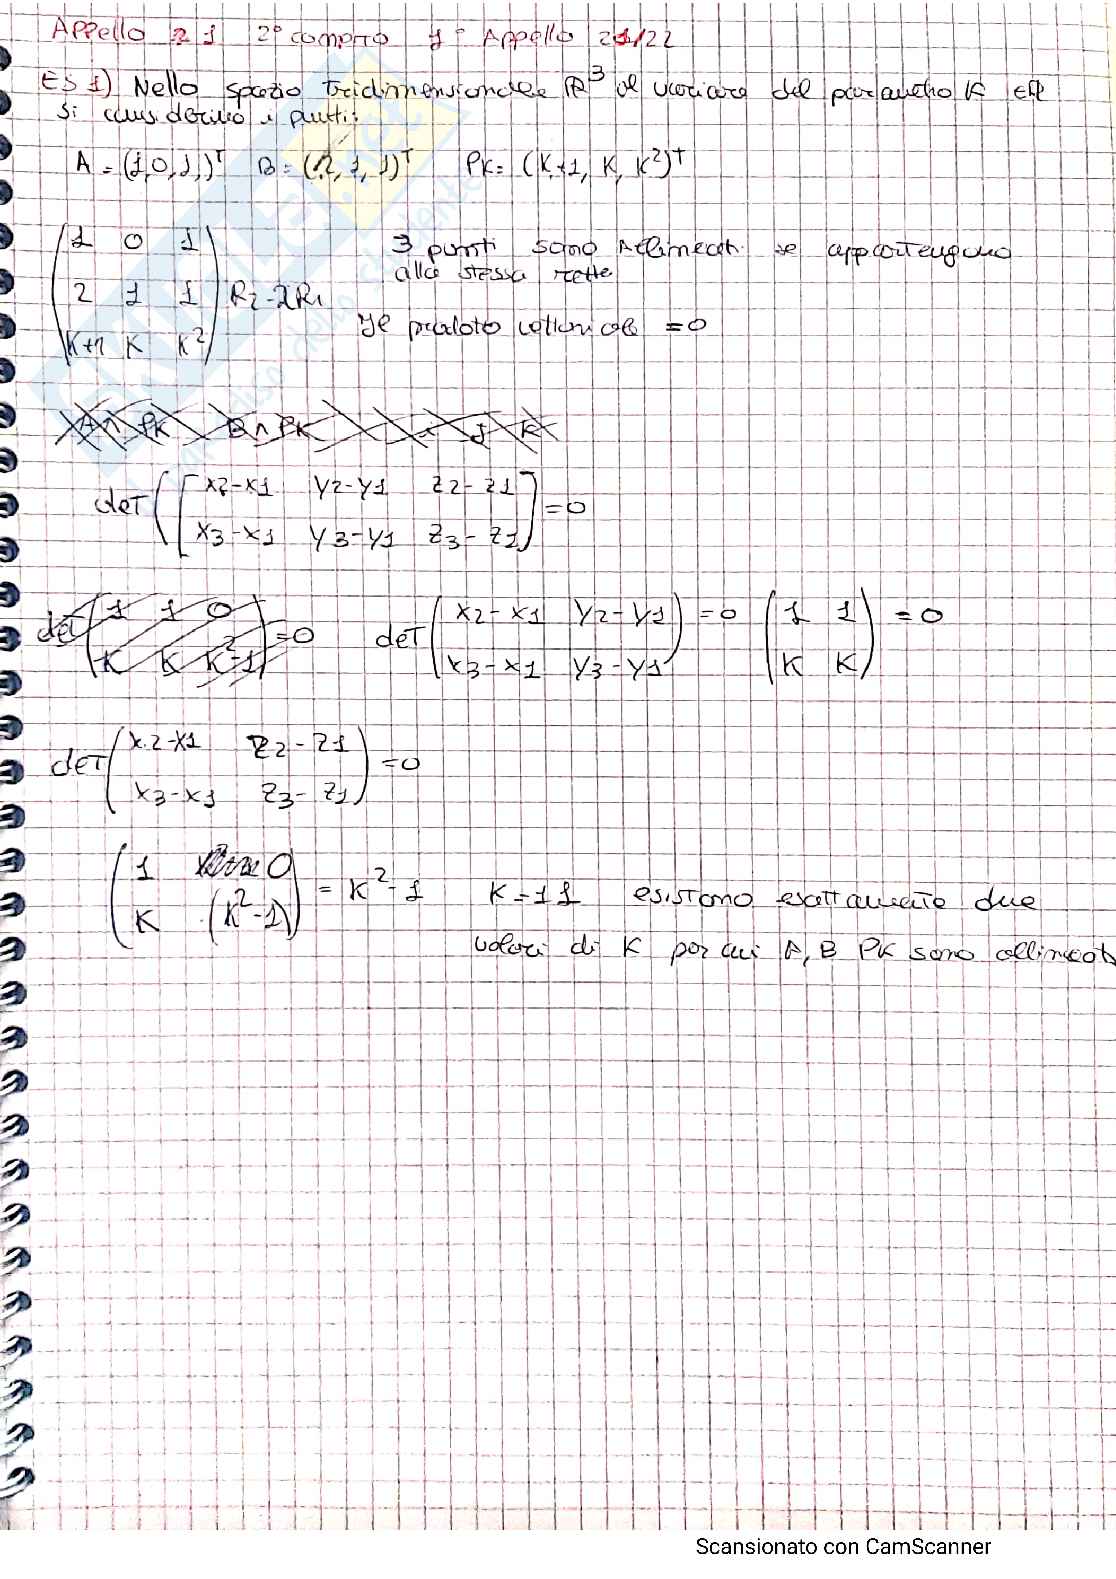 Appello 1 2° compito 1° Appello 21/22
ES 1) Nello spazio tridimensionale R³ al variare del parametro K ∈ R
si considerino i punti:
A = (1,0,1,)ᵀ B = (2, 1, 1)ᵀ PK = (K+1, K, K²)ᵀ
(1 0 1
2 1 1
K+1 K K²) R2-2R1
3 punti sono Allineati se appartengono
alla stessa retta
Il prodotto vettoriale = 0
A∧PK B∧PK i J K
det([x2-x1 y2-y1 z2-z1
x3-x1 y3-y1 z3-z1]) = 0
det(1 1 0
K K K²-1) = 0
det(x2-x1 y2-y1
x3-x1 y3-y1) = 0
(1 1
K K) = 0
det(x2-x1 z2-z1
x3-x1 z3-z1) = 0
(1 0
K (K²-1)) = K²-1 K = 1 1 esistono esattamente due
valori di K per cui A, B PK sono allineati
Scansionato con CamScanner